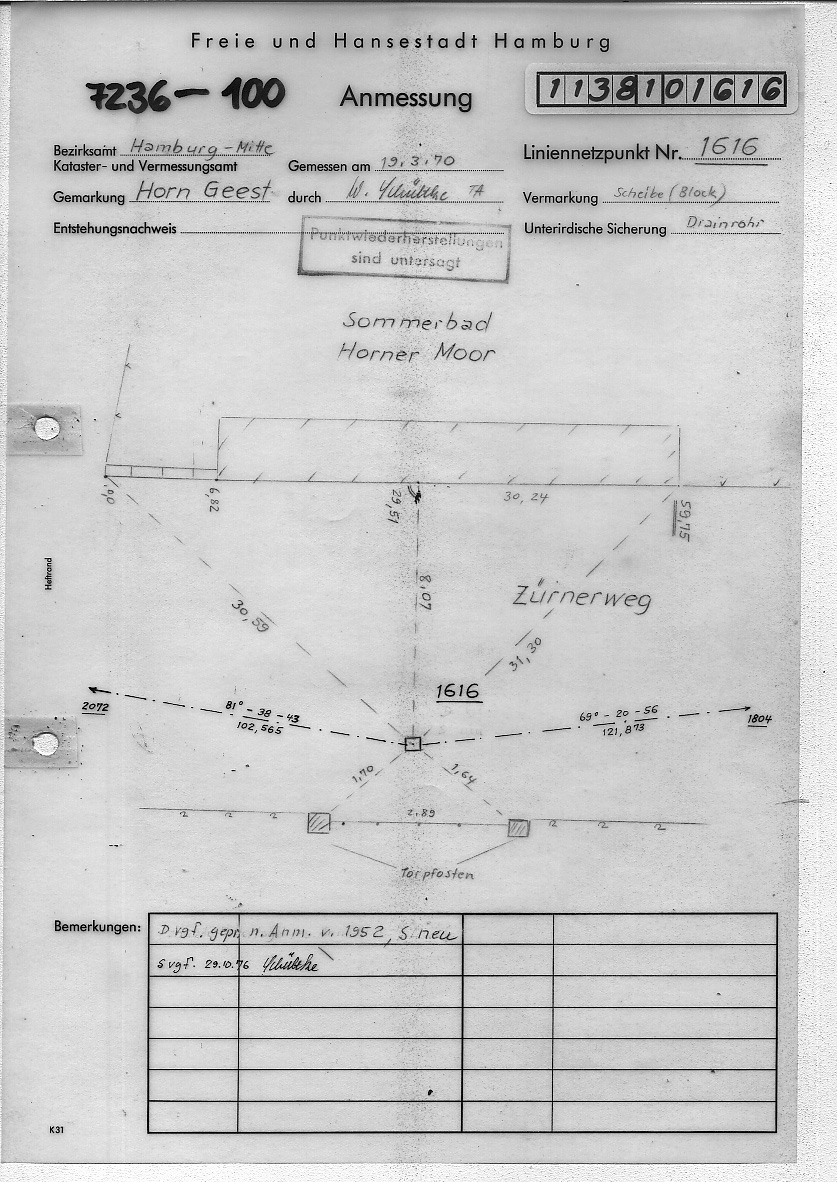 Freie und Hansestadt Hamburg
7236-100 Anmessung 1138101616
Bezirksamt Hamburg-Mitte
Kataster- und Vermessungsamt
Gemessen am 19.3.70
Liniennetzpunkt Nr. 1616
Gemarkung Horn Geest
durch W. Schützke TA
Vermarkung Scheibe (Block)
Entstehungsnachweis
Unterirdische Sicherung Drainrohr
Punktwiederherstellungen
sind untersagt
Sommerbad
Horner Moor
6,82
29,51
30,24
59,75
8,07
Zürnerweg
30,59
31,30
1616
2072
81° - 38 - 43
102,565
69° - 20 - 56
121,873
1804
1,70
1,64
2,89
Torpfosten
Heftrand
Bemerkungen:
D vgf. gepr. n. Anm. v. 1952, S neu
S vgf. 29.10.76 Schützke
K31